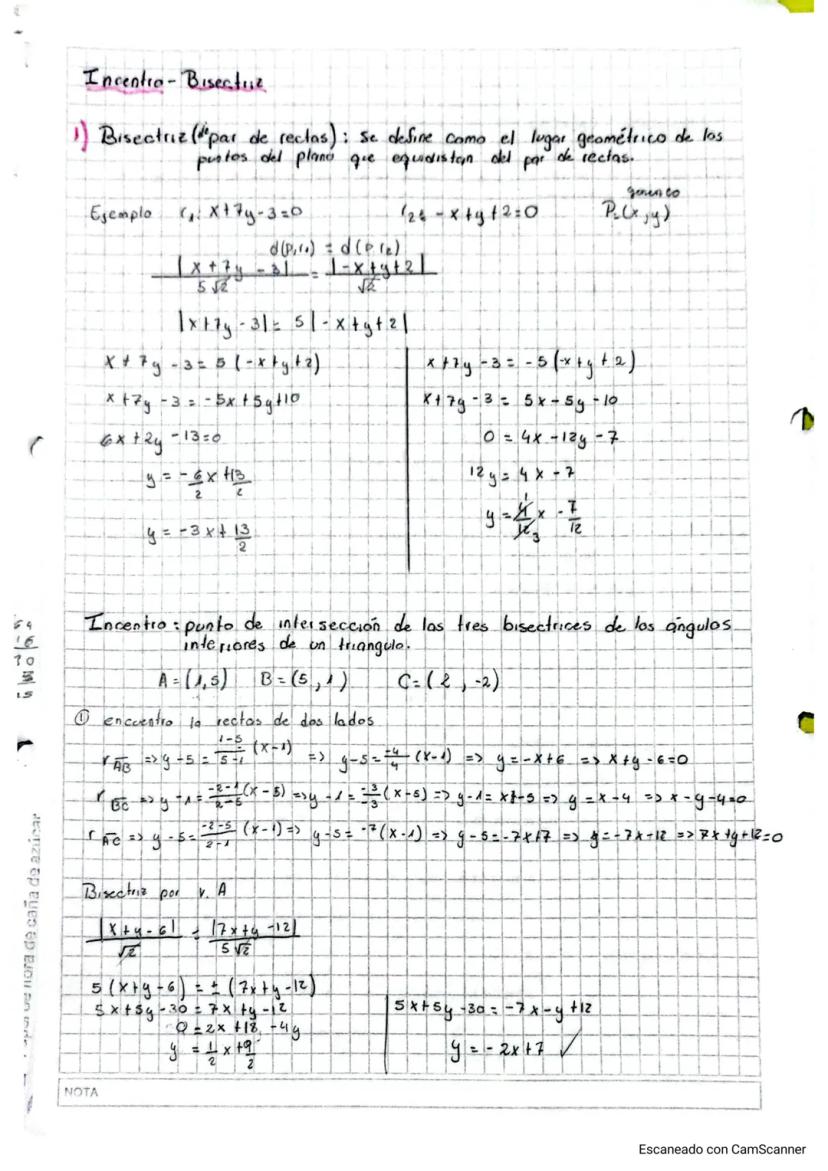 Incentro - Bisectriz
1) Bisectriz (de par de rectas): se define como el lugar geométrico de los
puntos del plano que equidistan del par de rectas.
Ejemplo r₁: x+7y-3=0 r₂: -x+y+2=0 P=(x,y)
d(P,r₁) = d(P,r₂)
|x+7y-3| / 5√2 = |-x+y+2| / √2
|x+7y-3| = 5|-x+y+2|
x+7y-3 = 5(-x+y+2)
x+7y-3 = -5x+5y+10
6x+2y-13=0
y = -6/2 x + 13/2
y = -3x + 13/2
x+7y-3 = -5(-x+y+2)
x+7y-3 = 5x-5y-10
0 = 4x-12y-7
12y = 4x-7
y = 4/12 x - 7/12
1 3
Incentro: punto de intersección de las tres bisectrices de los ángulos
interiores de un triangulo.
A=(1,5) B=(5,1) C=(2,-2)
① encuentro la rectas de dos lados
r AB => y-5 = 1-5/5-1 (x-1) => y-5 = -4/4 (x-1) => y=-x+6 => x+y-6=0
r BC => y-1 = -2-1/2-5 (x-5) => y-1 = -3/-3 (x-5) => y-1=x-5 => y=x-4 => x-y-4=0
r AC => y-5 = -2-5/2-1 (x-1) => y-5 = -7(x-1) => y-5=-7x+7 => y=-7x+12 => 7x+y+12=0
Bisectriz por v. A
|x+y-6| / √2 = |7x+y-12| / 5√2
5(x+y-6) = ± (7x+y-12)
5x+5y-30 = 7x+y-12
0 = 2x+18-4y
y = 1/2 x + 9/2
5x+5y-30 = -7x-y+12
y = -2x+7 ✓
NOTA
de caña de azúcar
Escaneado con CamScanner